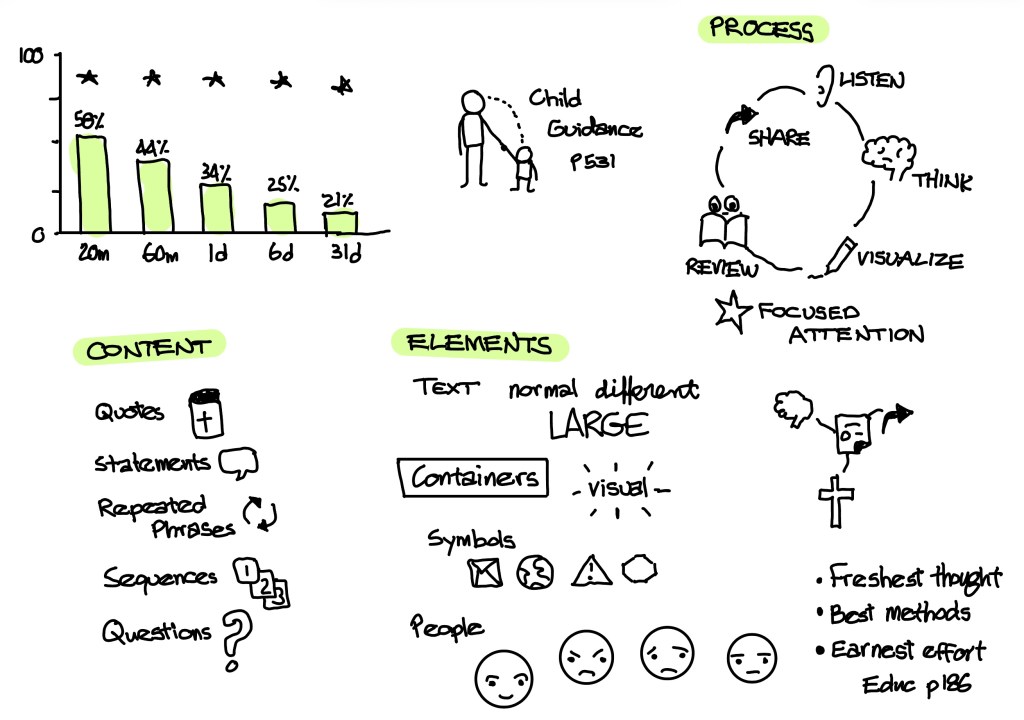 100
58%
44%
34%
25%
21%
0
20m
60m
1d
6d
31d
Child
Guidance
p531
PROCESS
LISTEN
THINK
VISUALIZE
REVIEW
SHARE
FOCUSED
ATTENTION
CONTENT
Quotes
Statements
Repeated
Phrases
Sequences
1
2
3
Questions
?
ELEMENTS
TEXT normal different
LARGE
Containers
visual
Symbols
!
People
• Freshest thought
• Best methods
• Earnest effort
Educ p186